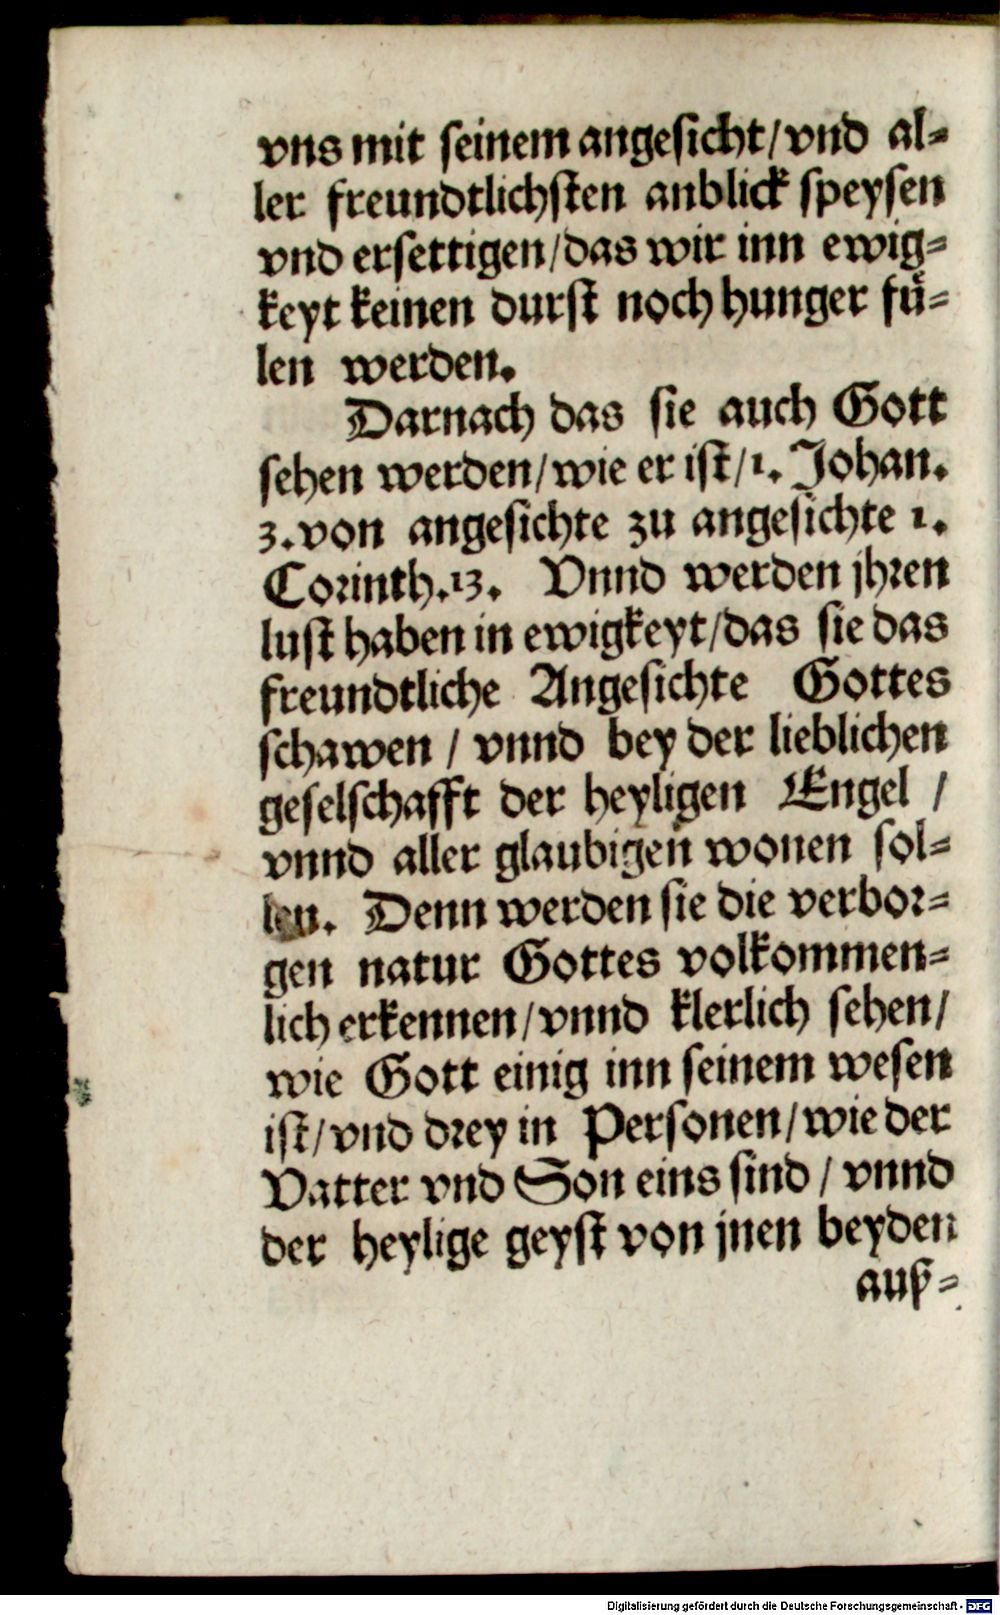 vns mit seinem angesicht/vnd al-
ler freundtlichsten anblick speysen
vnd ersettigen/das wir inn ewig-
keyt keinen durst noch hunger fuͤ-
len werden.
Darnach das sie auch Gott
sehen werden/wie er ist/1. Johan.
3. von angesichte zu angesichte 1.
Corinth.13. Vnnd werden jhren
lust haben in ewigkeyt/das sie das
freundtliche Angesichte Gottes
schawen / vnnd bey der lieblichen
geselschafft der heyligen Engel /
vnnd aller glaubigen wonen sol-
len. Denn werden sie die verbor-
gen natur Gottes volkommen-
lich erkennen/vnnd klerlich sehen/
wie Gott einig inn seinem wesen
ist/vnd drey in Personen/wie der
Vatter vnd Son eins sind / vnnd
der heylige geyst von jnen beyden
auß-
Digitalisierung gefördert durch die Deutsche Forschungsgemeinschaft - DFG